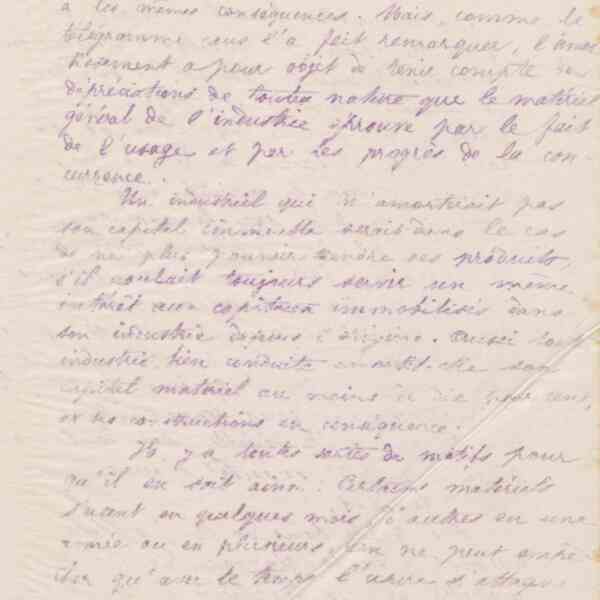 a les mêmes conséquences. Mais, comme le
télégramme vous l'a fait remarquer, l'amor
tissement a pour objet de tenir compte des
dépréciations de toutes nature que le matériel
général de l'industrie éprouve par le fait
de l'usage et par les progrès de la con-
currence.
Un industriel qui n'amortirait pas
son capital immeuble serait dans le cas
de ne plus pouvoir vendre ses produits,
s'il voulait toujours servir un même
intérêt aux capitaux immobilisés dans
son industrie depuis l'origine. Aussi toute
industrie bien conduite amortit-elle son
capital matériel au moins à dix pour cent,
et ses constructions en conséquence.
Il y a toutes sortes de motifs pour
qu'il en soit ainsi : Certains matériels
s'usent en quelques mois, d'autres en une
année ou en plusieurs. On ne peut empê
cher qu'avec le temps l'usure s'attaque